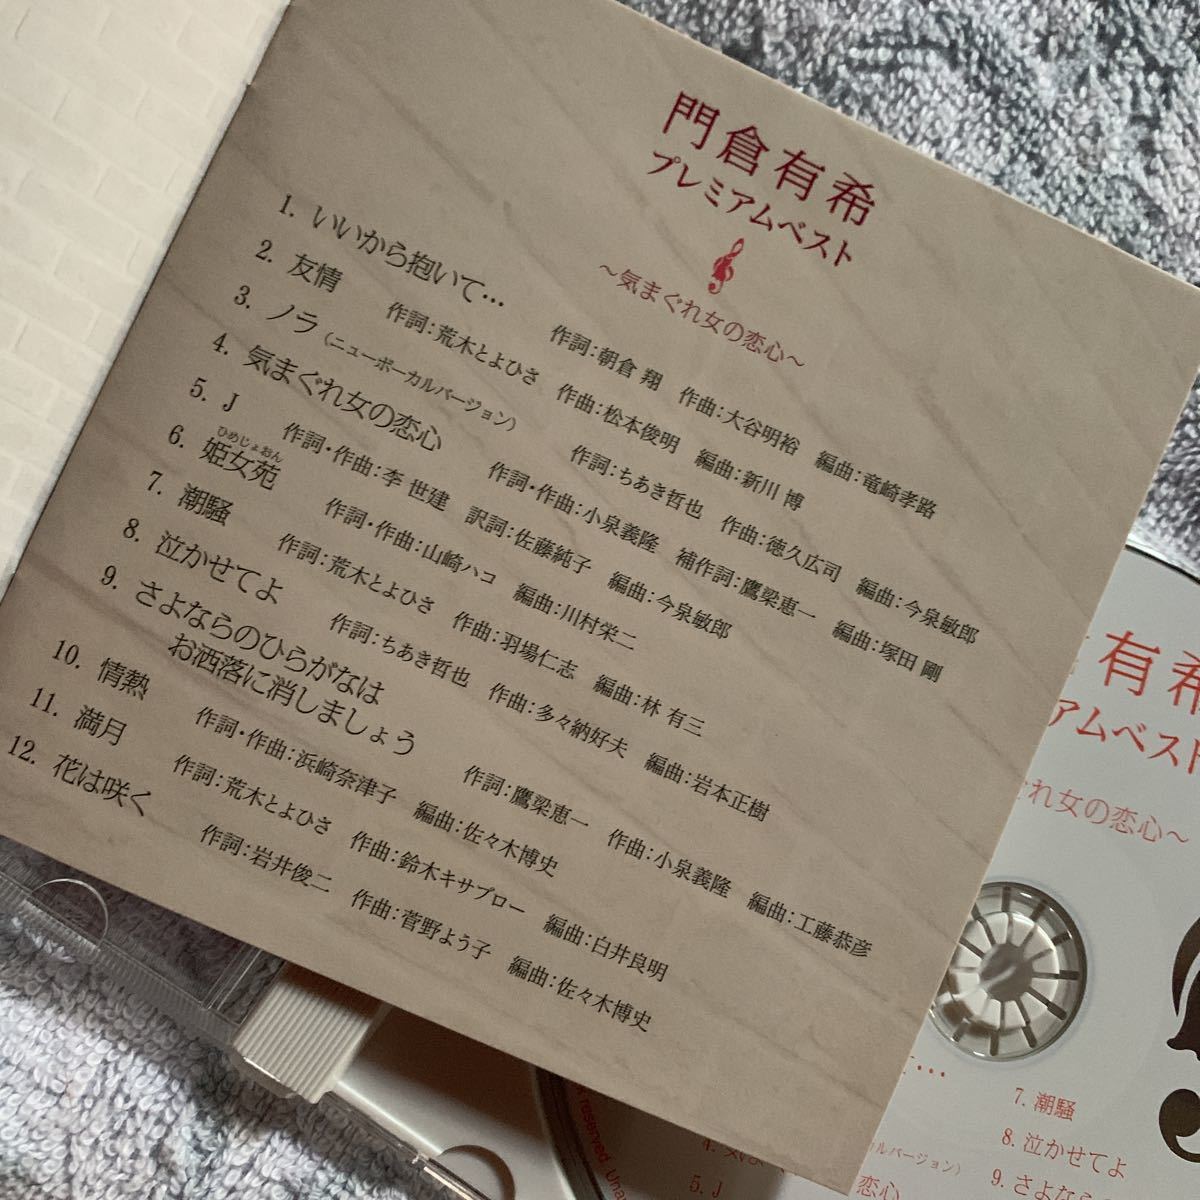 門倉有希
プレミアムベスト
～気まぐれ女の恋心～
1. いいから抱いて… 作詞：朝倉 翔 作曲：大谷明裕 編曲：竜崎孝路
2. 友情 作詞：荒木とよひさ 作曲：松本俊明 編曲：新川 博
3. ノラ（ニューボーカルバージョン） 作詞：ちあき哲也 作曲：徳久広司 編曲：今泉敏郎
4. 気まぐれ女の恋心 作詞・作曲：小泉義隆 補作詞：鷹梁恵一 編曲：塚田 剛
5. J 作詞・作曲：李 世建 訳詞：佐藤純子 編曲：今泉敏郎
ひめじょおん
6. 姫女苑 作詞・作曲：山崎ハコ 編曲：川村栄二
7. 潮騒 作詞：荒木とよひさ 作曲：羽場仁志 編曲：林 有三
8. 泣かせてよ 作詞：ちあき哲也 作曲：多々納好夫 編曲：岩本正樹
9. さよならのひらがなは
お洒落に消しましょう 作詞：鷹梁恵一 作曲：小泉義隆 編曲：工藤恭彦
10. 情熱 作詞・作曲：浜崎奈津子 編曲：佐々木博史
11. 満月 作詞：荒木とよひさ 作曲：鈴木キサブロー 編曲：白井良明
12. 花は咲く 作詞：岩井俊二 作曲：菅野よう子 編曲：佐々木博史
有希
アムベスト
れ女の恋心～
…
ルバージョン）
恋心
5. J
7. 潮騒
8. 泣かせてよ
9. さよなら
reserved.